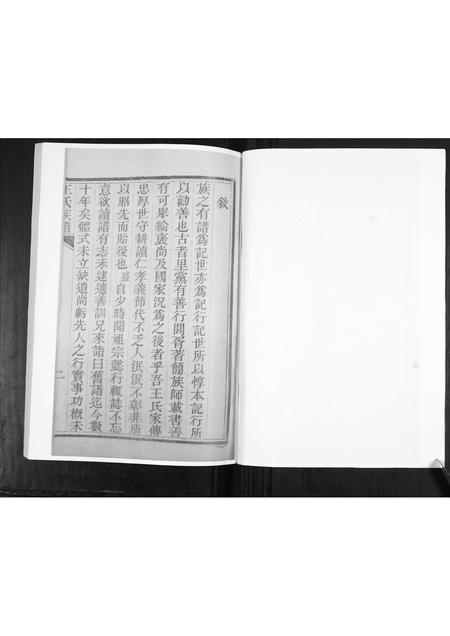 敘
族之有譜為記世亦為記行記世所以惇本記行所
以勸善也古者里黨有善行閭胥著簡族師載書善
有可舉綸褒尚及國家況為之後者乎吾王氏家傳
忠厚世守耕讀仁孝義節代不乏人泯泯不彰非所
以昭先而貽後也 自少時聞祖宗懿行輒誌不忘
意欲讀譜有志未逮適善訓兄來詣曰舊譜迄今數
十年矣體式未立缺遺尚虧先人之行實事功概未
王氏族譜
二